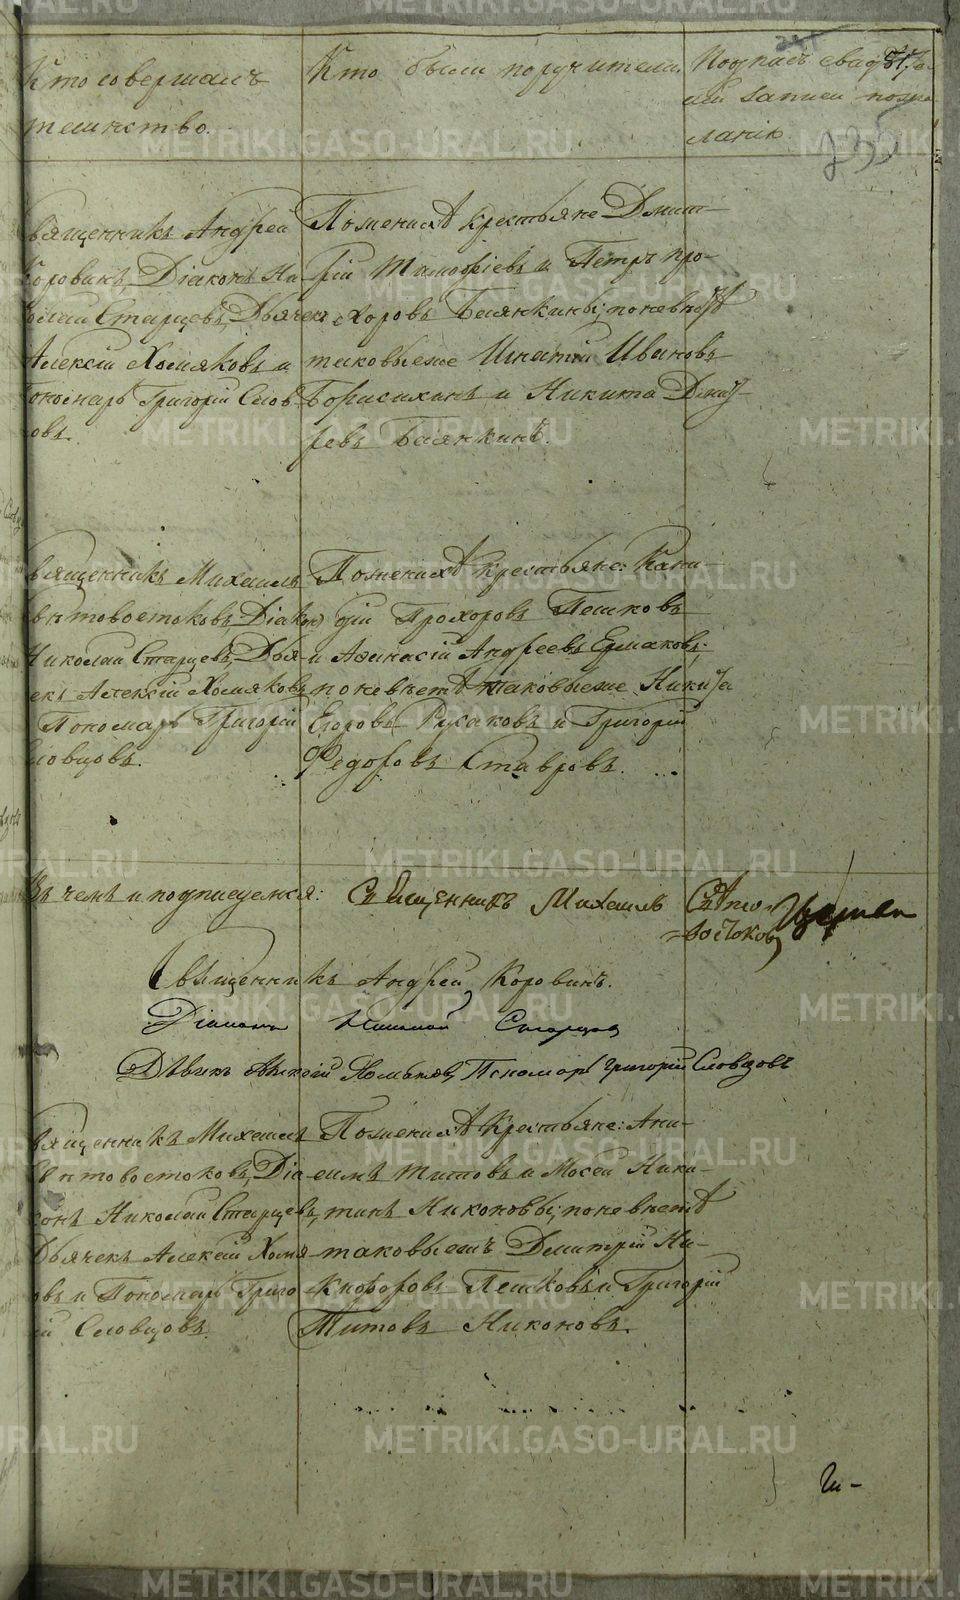 Кто совершалъ
таинство.
Кто были поручители.
Подпись свидѣте
лей записи по жела
ланію
255
вященникъ Андрей
Коровинъ, Діаконъ Ни
колай Старцевъ, Дьячекъ
Алексій Хомяковъ и
ономарь Григорій Слов
овъ.
По женихѣ крестьяне Дмит-
рій Тимофіевъ и Петръ Про-
хоровъ Баянкины; по невѣстѣ
таковыеже Игнатій Ивановъ
Борисихинъ и Никита Дмит-
ревъ Баянкинъ.
вященникъ Михаилъ
вятовостоковъ, Діакон
Николай Старцевъ, Дья-
екъ Алексій Хомяковъ
Пономарь Григорій
ловцовъ.
По женихѣ крестьяне:
дій Прохоровъ Пешковъ
и Афанасій Андреевъ Ермаковъ;
по невѣстѣ таковыеже Никита
Егоровъ Русаковъ и Григорій
Федоровъ Ставровъ.
Въ чемъ и подписуемся: Священникъ Михаилъ Свято-
востоковъ
Священникъ Андрей Коровинъ.
Діаконъ Николай Старцовъ
Дьячекъ Алексій Хомяковъ, Пономарь Григорій Словцовъ
вященникъ Михаилъ
вятовостоковъ, Діа-
конъ Николай Старцевъ,
Дьячекъ Алексій Хомя-
овъ и Пономарь Григо-
ій Словцовъ.
По женихѣ крестьяне: Ани-
симъ Титовъ и Мосей Ники-
тинъ Никоновы; по невѣстѣ
таковыежъ Дмитрій Ни-
кифоровъ Пешковъ и Григорій
Титовъ Никоновъ.
METRIKI.GASO-URAL.RU